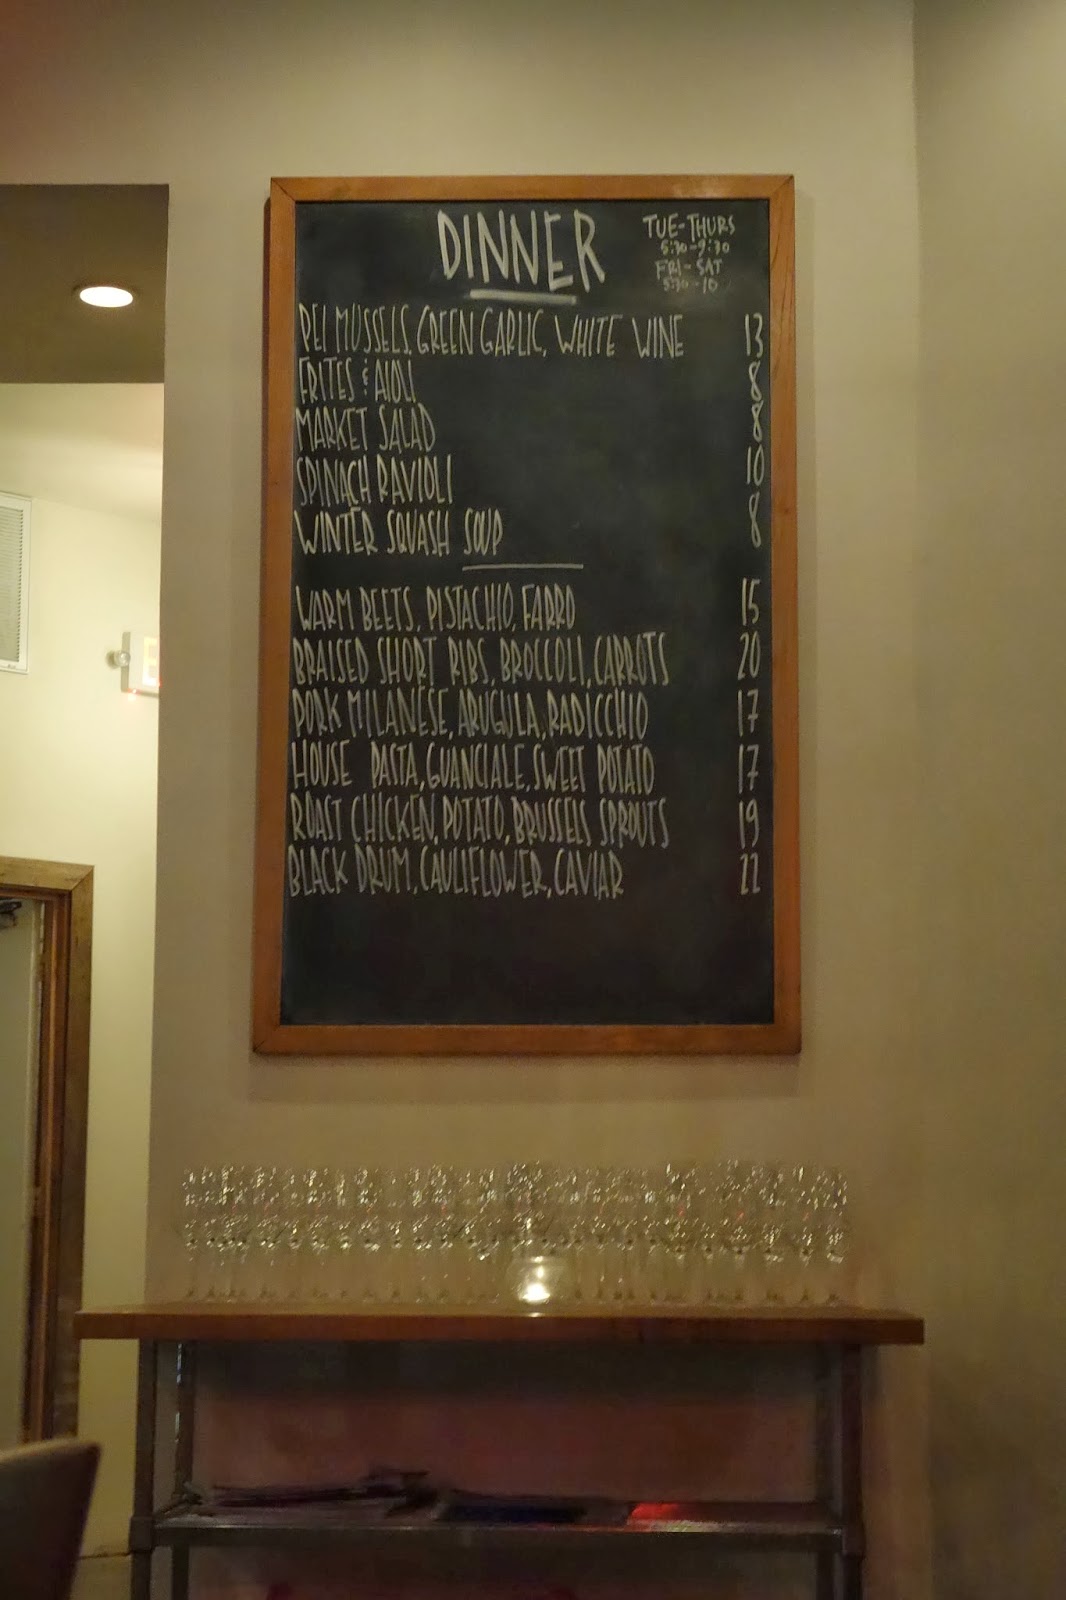 DINNER
TUE-THURS
5:30-9:30
FRI-SAT
5:30-10
PEI MUSSELS, GREEN GARLIC, WHITE WINE 13
FRITES & AIOLI 8
MARKET SALAD 8
SPINACH RAVIOLI 10
WINTER SQUASH SOUP 8
WARM BEETS, PISTACHIO, FARRO 15
BRAISED SHORT RIBS, BROCCOLI, CARROTS 20
PORK MILANESE, ARUGULA, RADICCHIO 17
HOUSE PASTA, GUANCIALE, SWEET POTATO 17
ROAST CHICKEN, POTATO, BRUSSELS SPROUTS 19
BLACK DRUM, CAULIFLOWER, CAVIAR 22